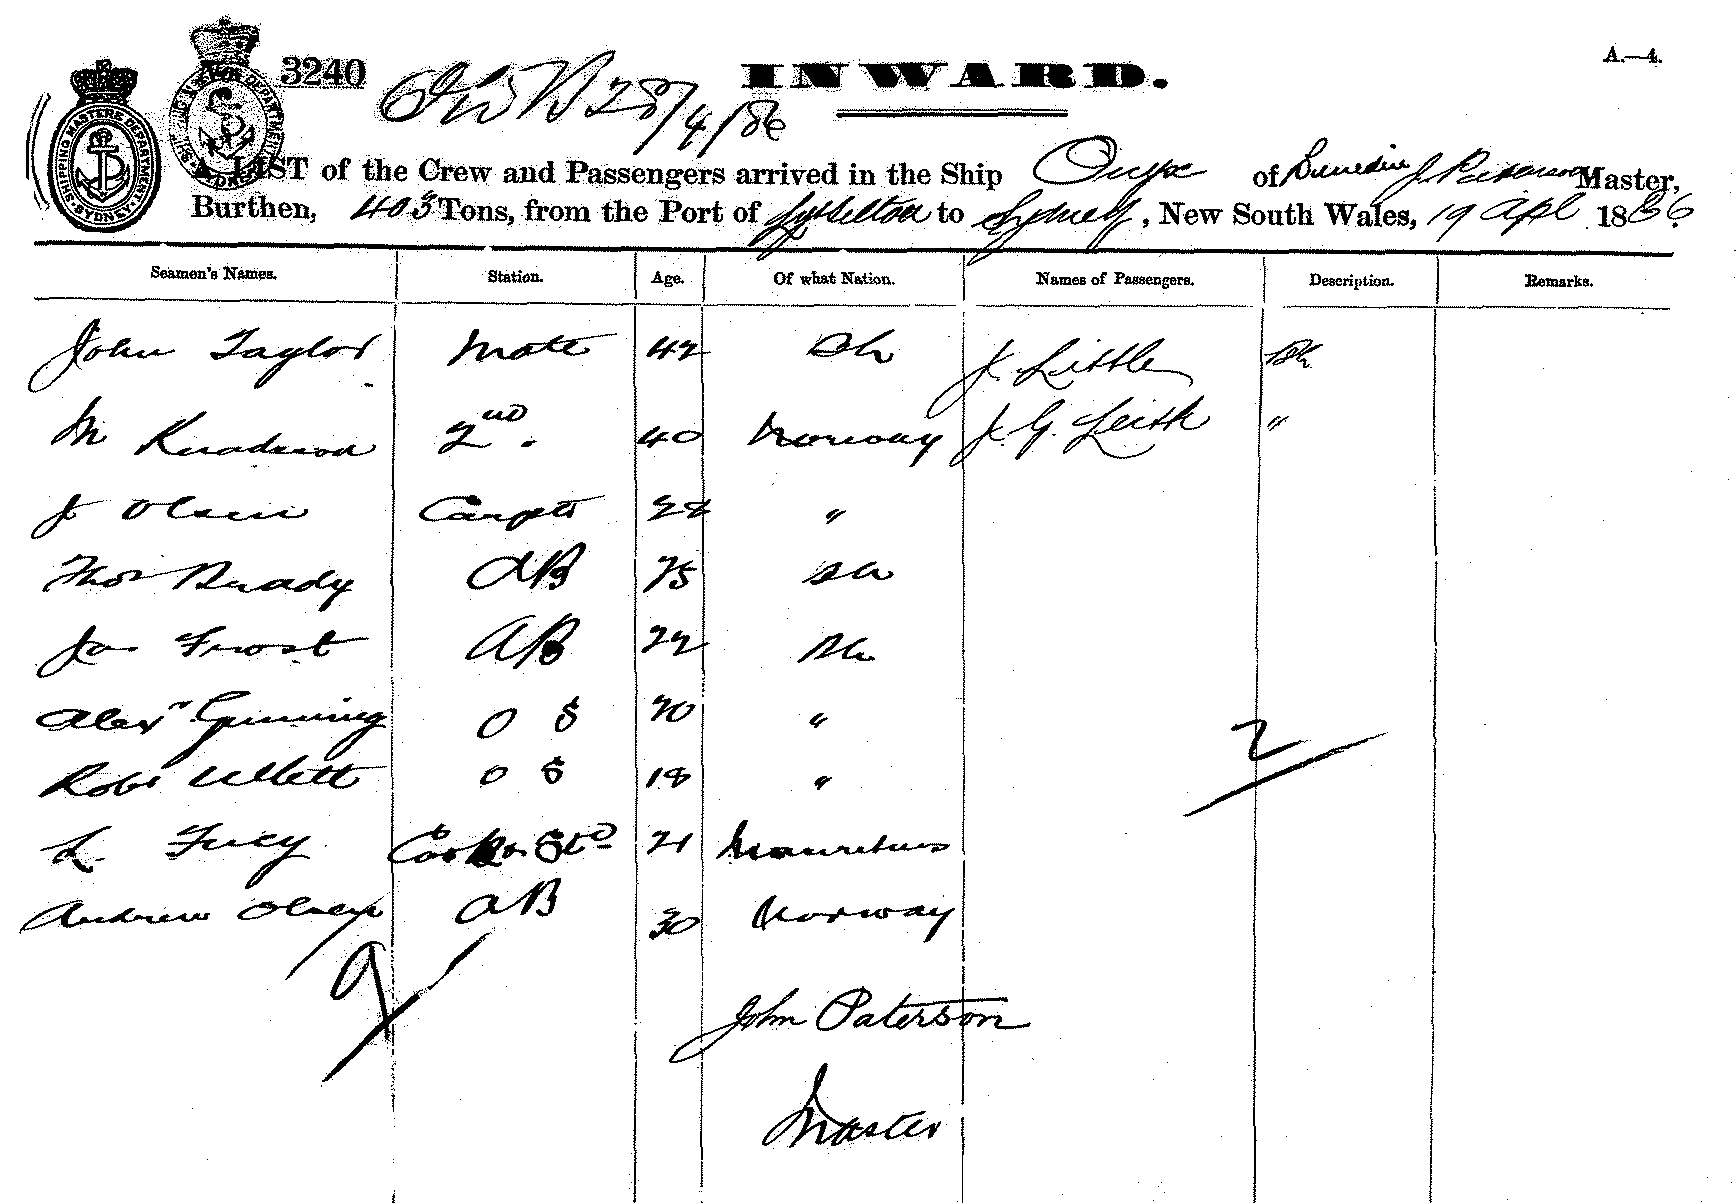 3240
28/4/86
INWARD.
A.—4.
SHIPPING MASTERS DEPARTMENT SYDNEY
A LIST of the Crew and Passengers arrived in the Ship Onyx of Dunedin J. Paterson Master,
Burthen, 403 Tons, from the Port of Lyttelton to Sydney, New South Wales, 19 Apl 1886.
Seamen's Names. Station. Age. Of what Nation. Names of Passengers. Description. Remarks.
John Taylor Mate 42 J. Little
M Knudson 2nd " 40 Norway J. G. Leith "
J Olsen Carptr 28 "
Thos Brady AB 25
Jas Frost AB 22
Alexr O S 20 "
Robt O S 18 "
L. Cook & Std 21 Mauritius
Andrew Olsen AB 30 Norway
2
9
John Paterson
Master